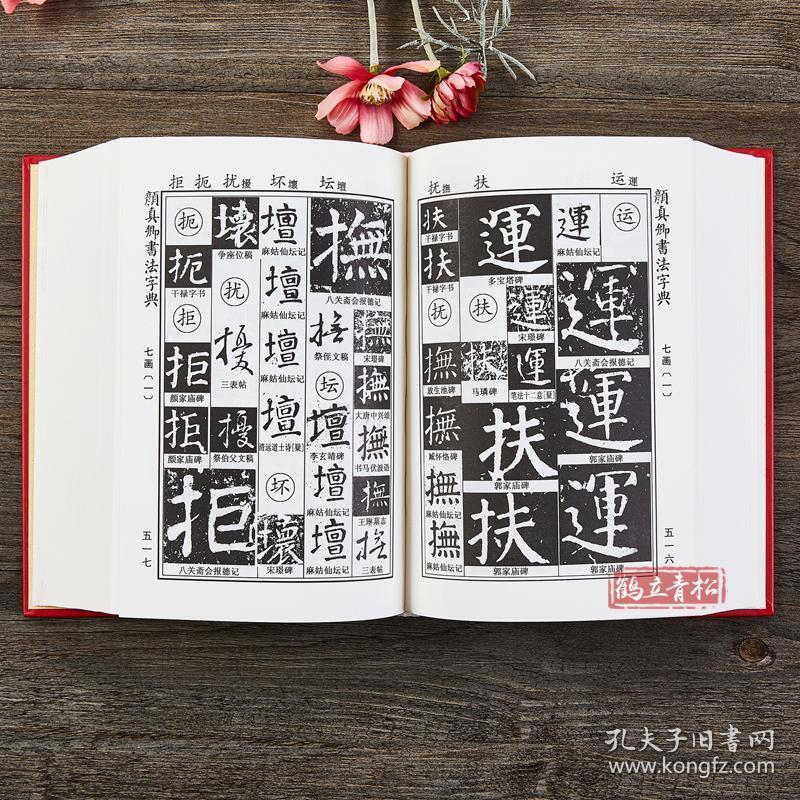 运運
扶
抚撫
顔真卿書法字典
七画〔一〕
五一六
运
運
麻姑仙坛记
運
八关斋会报德记
運
郭家庙碑
運
郭家庙碑
運
多宝塔碑
運
宋璟碑
運
笔法十二意[疑]
扶
扶
马璘碑
扶
郭家庙碑
扶
郭家庙碑
扶
干禄字书
扶
干禄字书
抚
撫
放生池碑
撫
臧怀恪碑
撫
麻姑仙坛记
撫
麻姑仙坛记
坛壇
坏壞
扰擾
扼
拒
顔真卿書法字典
七画〔一〕
五一七
撫
八关斋会报德记
撫
宋璟碑
撫
大唐中兴颂
撫
书马伏波语
撫
王琳墓志
撫
三表帖
撫
祭侄文稿
坛
壇
李玄靖碑
壇
麻姑仙坛记
壇
麻姑仙坛记
壇
麻姑仙坛记
壇
麻姑仙坛记
壇
麻姑仙坛记
壇
清远道士诗[疑]
坏
壞
宋璟碑
壞
争座位稿
扰
擾
三表帖
擾
祭伯父文稿
扼
扼
干禄字书
拒
拒
颜家庙碑
拒
颜家庙碑
拒
八关斋会报德记
鹤立青松
孔夫子旧书网
www.kongfz.com